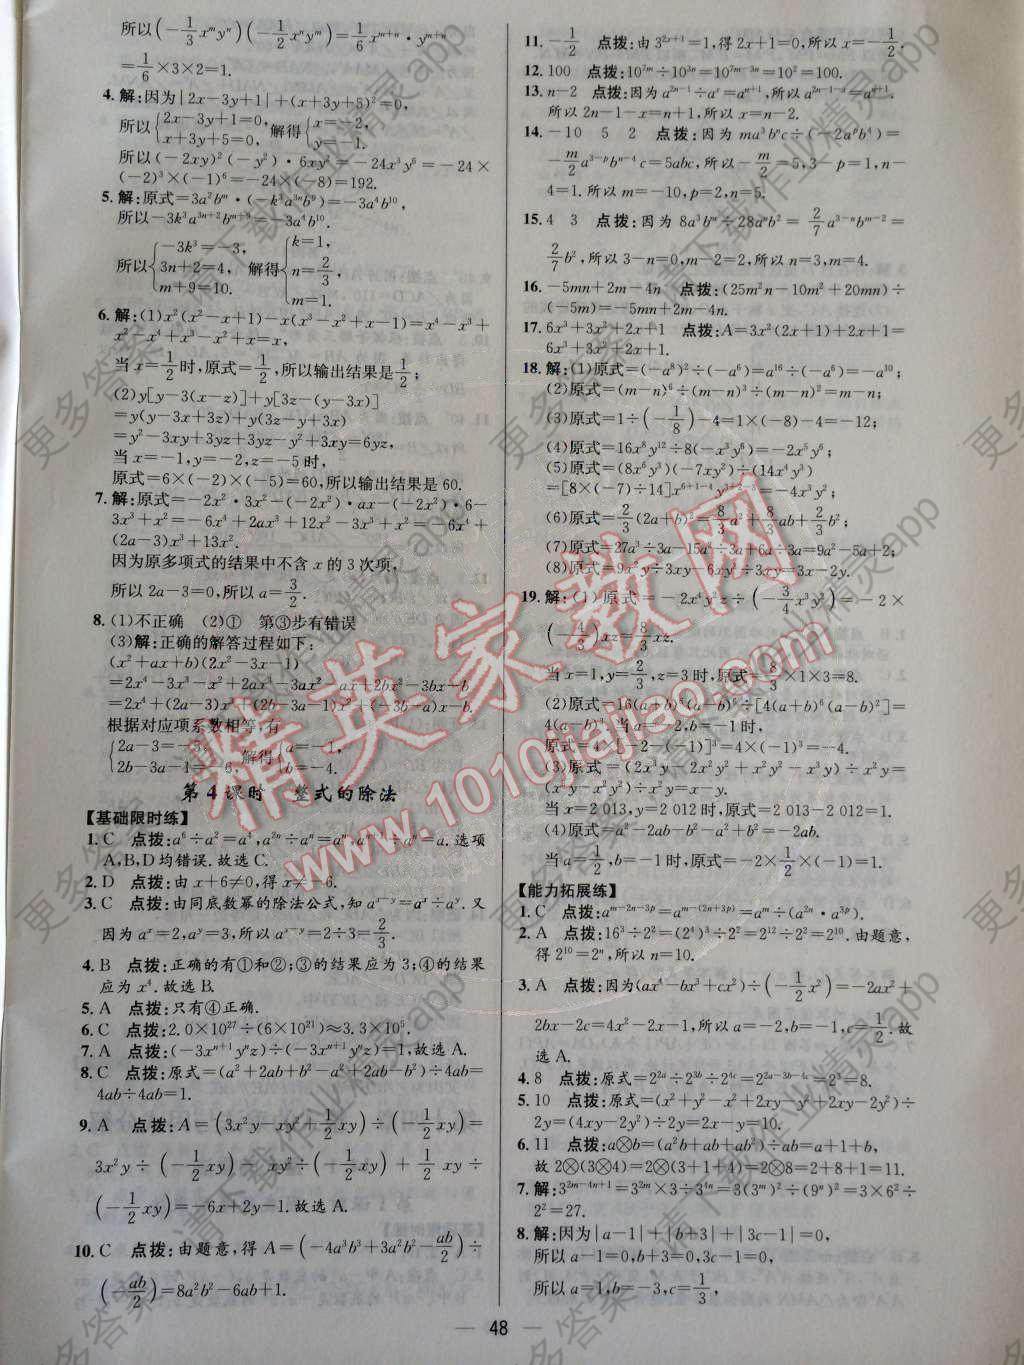 所以(-1/3 x^m y^n)(-1/2 x^n y^m)=1/6 x^{m+n}·y^{m+n}
=1/6×3×2=1.
4. 解:因为|2x-3y+1|+(x+3y+5)²=0,
所以{2x-3y+1=0, x+3y+5=0, 解得{x=-2, y=-1.
所以(-2xy)²(-y²)·6xy²=-24x³y⁶=-24×
(-2)³×(-1)⁶=-24×(-8)=192.
5. 解:原式=3a²b^m·(-k³a^{3n}b⁹)=-3a⁴b¹⁰,
所以-3k³a^{3n+2}b^{m+9}=-3a⁴b¹⁰.
所以{-3k³=-3, 3n+2=4, m+9=10. 解得{k=1, n=2/3, m=1.
6. 解:(1)x²(x²-x+1)-x(x³-x²+x-1)=x⁴-x³+
x²-x⁴+x³-x²+x=x,
当x=1/2时,原式=1/2,所以输出结果是1/2;
(2)y[y-3(x-z)]+y[3z-(y-3x)]
=y(y-3x+3z)+y(3z-y+3x)
=y²-3xy+3yz+3yz-y²+3xy=6yz,
当x=-1,y=-2,z=-5时,
原式=6×(-2)×(-5)=60,所以输出结果是60.
7. 解:原式=-2x²·3x²-(-2x²)·ax-(-2x²)·6-
3x³+x²=-6x⁴+2ax³+12x²-3x³+x²=-6x⁴+
(2a-3)x³+13x².
因为原多项式的结果中不含x的3次项,
所以2a-3=0,所以a=3/2.
8. (1)不正确 (2)① 第③步有错误
(3)解:正确的解答过程如下:
(x²+ax+b)(2x²-3x-1)
=2x⁴-3x³-x²+2ax³-3ax²-ax+2bx²-3bx-b
=2x⁴+(2a-3)x³+(2b-3a-1)x²+(-3b-a)x-b.
根据对应项系数相等,有
{2a-3=-5, 2b-3a-1=-6, 解得{a=-1, b=-4.
第4课时 整式的除法
【基础限时练】
1. C 点拨:a⁶÷a²=a⁴,a^{2n}÷a^n=a^n,a^{m+1}÷a^m=a.选项
A,B,D均错误.故选C.
2. D 点拨:由x+6≠0,得x≠-6.
3. C 点拨:由同底数幂的除法公式,知a^{x-y}=a^x÷a^y.又
因为a^x=2,a^y=3,所以a^{x-y}=2÷3=2/3.
4. B 点拨:正确的有①和②;③的结果应为3;④的结果
应为x⁴.故选B.
5. A 点拨:只有④正确.
6. C 点拨:2.0×10²⁷÷(6×10²¹)≈3.3×10⁵.
7. A 点拨:(-3x^{n+1}y^n z)÷(-3x^{n+1}y^n z)=1,故选A.
8. C 点拨:原式=(a²+2ab+b²-a²+2ab-b²)÷4ab=
4ab÷4ab=1.
9. A 点拨:A=(3x²y-xy²+1/2 xy)÷(-1/2 xy)=
3x²y÷(-1/2 xy)-xy²÷(-1/2 xy)+1/2 xy÷
(-1/2 xy)=-6x+2y-1.故选A.
10. C 点拨:由题意,得A=(-4a³b³+3a²b²-ab/2)÷
(-ab/2)=8a²b²-6ab+1.
11. -1/2 点拨:由3^{2x+1}=1,得2x+1=0,所以x=-1/2.
12. 100 点拨:10^{7m}÷10^{3n}=10^{7m-3n}=10²=100.
13. n-2 点拨:因为a^{2n-1}÷a^x=a^{n+1},所以a^{2n-1-x}=a^{n+1}.
所以2n-1-x=n+1,所以x=n-2.
14. -10 5 2 点拨:因为ma³b^n c÷(-2a^p b⁴)=
-m/2 a^{3-p}b^{n-4}c=5abc,所以-m/2=5,3-p=1,n-
4=1.所以m=-10,p=2,n=5.
15. 4 3 点拨:因为8a³b^m÷28a^n b²=2/7 a^{3-n}b^{m-2}=
2/7 b²,所以3-n=0,m-2=2,所以n=3,m=4.
16. -5mn+2m-4n 点拨:(25m²n-10m²+20mn)÷
(-5m)=-5mn+2m-4n.
17. 6x³+3x²+2x+1 点拨:A=3x²(2x+1)+2x+1=
6x³+3x²+2x+1.
18. 解:(1)原式=(-a⁸)²÷(-a⁶)=a¹⁶÷(-a⁶)=-a¹⁰;
(2)原式=(m-n)⁶÷(m-n)³÷(m-n)=(m-n)²;
(3)原式=1÷(-1/8)-4=1×(-8)-4=-12;
(4)原式=16x⁸y¹²÷8(-x³y⁶)=-2x⁵y⁶;
(5)原式=(8x⁶y³)(-7xy²)÷(14x⁴y³)
=[8×(-7)÷14]x^{6+1-4}y^{3+2-3}=-4x³y²;
(6)原式=2/3(2a+b)²=8/3 a²+8/3 ab+2/3 b²;
(7)原式=27a³÷3a-15a²÷3a+6a÷3a=9a²-5a+2;
(8)原式=9x²y÷3xy-6xy²÷3xy=3x-2y.
19. 解:(1)原式=-2x⁴y²z÷(-3/4 x³y²)=-2×
(-4/3)xz=8/3 xz.
当x=1,y=2/3,z=3时,原式=8/3×1×3=8.
(2)原式=16(a+b)⁴(a-b)⁵÷[4(a+b)⁴(a-b)²]=
4(a-b)³,当a=-2,b=-1时,
原式=4[-2-(-1)]³=4×(-1)³=-4.
(3)原式=(2x³y-2x²y²+x²y²-x³y)÷
(x²y-xy²)=x-y.
当x=2 013,y=2 012时,原式=2 013-2 012=1.
(4)原式=a²-2ab-b²-a²+b²=-2ab.
当a=1/2,b=-1时,原式=-2×1/2×(-1)=1.
【能力拓展练】
1. C 点拨:a^{m-2n-3p}=a^{m-(2n+3p)}=a^m÷(a^{2n}·a^{3p}).
2. A 点拨:16³÷2²=(2⁴)³÷2²=2¹²÷2²=2¹⁰.由题意,
得2¹⁰=2^n,所以n=10.
3. A 点拨:因为(ax⁴-bx³+cx²)÷(-1/2 x²)=-2ax²+
2bx-2c=4x²-2x-1,所以a=-2,b=-1,c=1/2.故
选A.
4. 8 点拨:原式=2^{2a}÷2^{3b}÷2^{4c}=2^{2a-3b-4c}=2³=8.
5. 10 点拨:原式=(x²+y²-x²+2xy-y²+2xy-2y²)÷
2y=(4xy-2y²)÷2y=2x-y=10.
6. 11 点拨:a⊗b=(a²b+ab+ab²)÷ab=a+1+b,
故2⊗(3⊗4)=2⊗(3+1+4)=2⊗8=2+8+1=11.
7. 解:3^{2m-4n+1}=3^{2m}×3÷3^{4n}=3(3^m)²÷(9^n)²=3×6²÷
2²=27.
8. 解:因为|a-1|+|b+3|+|3c-1|=0,
所以a-1=0,b+3=0,3c-1=0,
所以a=1,b=-3,c=1/3,
— 48 —
精英家教网
www.1010jiajiao.com
更多答案 请下载作业精灵app